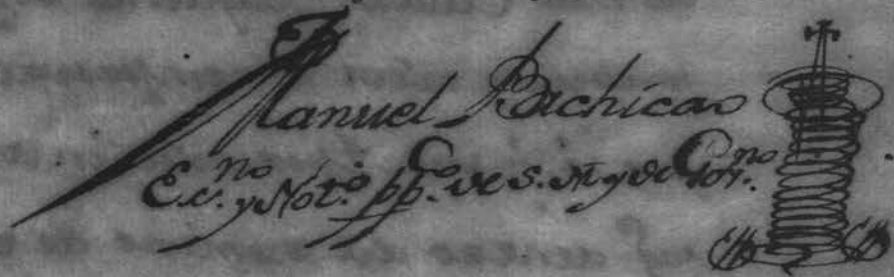 Manuel Bachicao
Es.no y Not.o pp.co de S. M. y de Gov.no